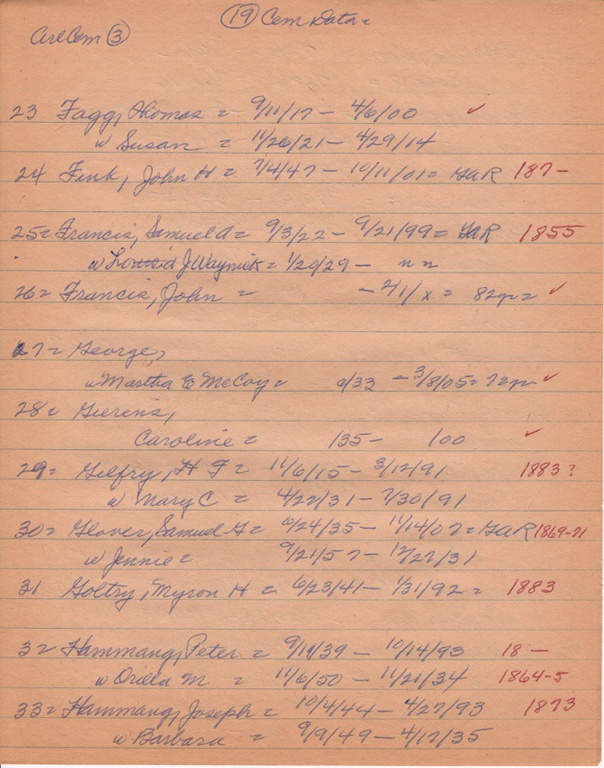 (19) Cem Data =
Cem (3)
23 Fagg, Thomas = 9/11/17 - 4/6/00 ✓
w Susan = 11/26/21 - 4/29/14
24 Fink, John H = 7/4/47 - 10/11/01 = GAR 187-
25 = Francis, Samuel A = 9/3/22 - 9/21/99 = GAR 1855
w J Waynick = 1/20/29 - n n
26 = Francis, John = - 2/1/x = 82yr = ✓
27 = George,
w Martha E McCoy = /33 - 3/8/05 = 72yr ✓
28 = Gierens,
Caroline = /35 - /00 ✓
29 = Gilfry, H F = 11/6/15 - 3/12/91 1883?
w Mary C = 4/22/31 - 7/30/91
30 = Glover, Samuel G = 6/24/35 - 11/14/07 = GAR 1869-71
w Jennie = 9/21/57 - 12/27/31
31 Goltry, Myron H = 6/23/41 - 1/31/92 = 1883
32 = Hammang, Peter = 9/19/39 - 10/14/93 18 -
w Orilla M = 11/6/50 - 11/21/34 1864-5
33 = Hammang, Joseph = 10/4/44 - 4/27/93 1873
w Barbara = 9/9/49 - 4/17/35